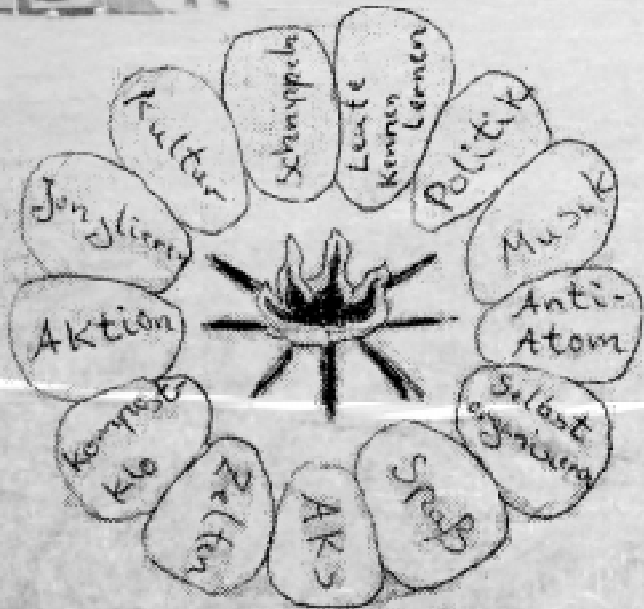 Schnippeln
Leute
kennen
Lernen
Politik
Musik
Anti-
Atom
Selbst
organisieren
Spaß
AKs
Zelten
Kompost
Klo
AKtion
Jonglieren
Kultur